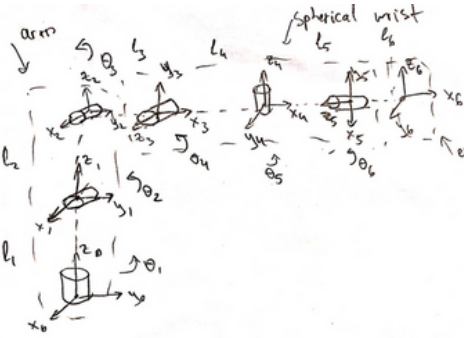 spherical wrist
arm
θ3
l3
l4
l5
l6
z2
y3
z4
x5
z6
x2
y2
z3
x3
x4
z5
x5
x6
y6
y4
θ4
θ5
θ6
l2
z1
θ2
x1
y1
l1
z0
θ1
x0
y0